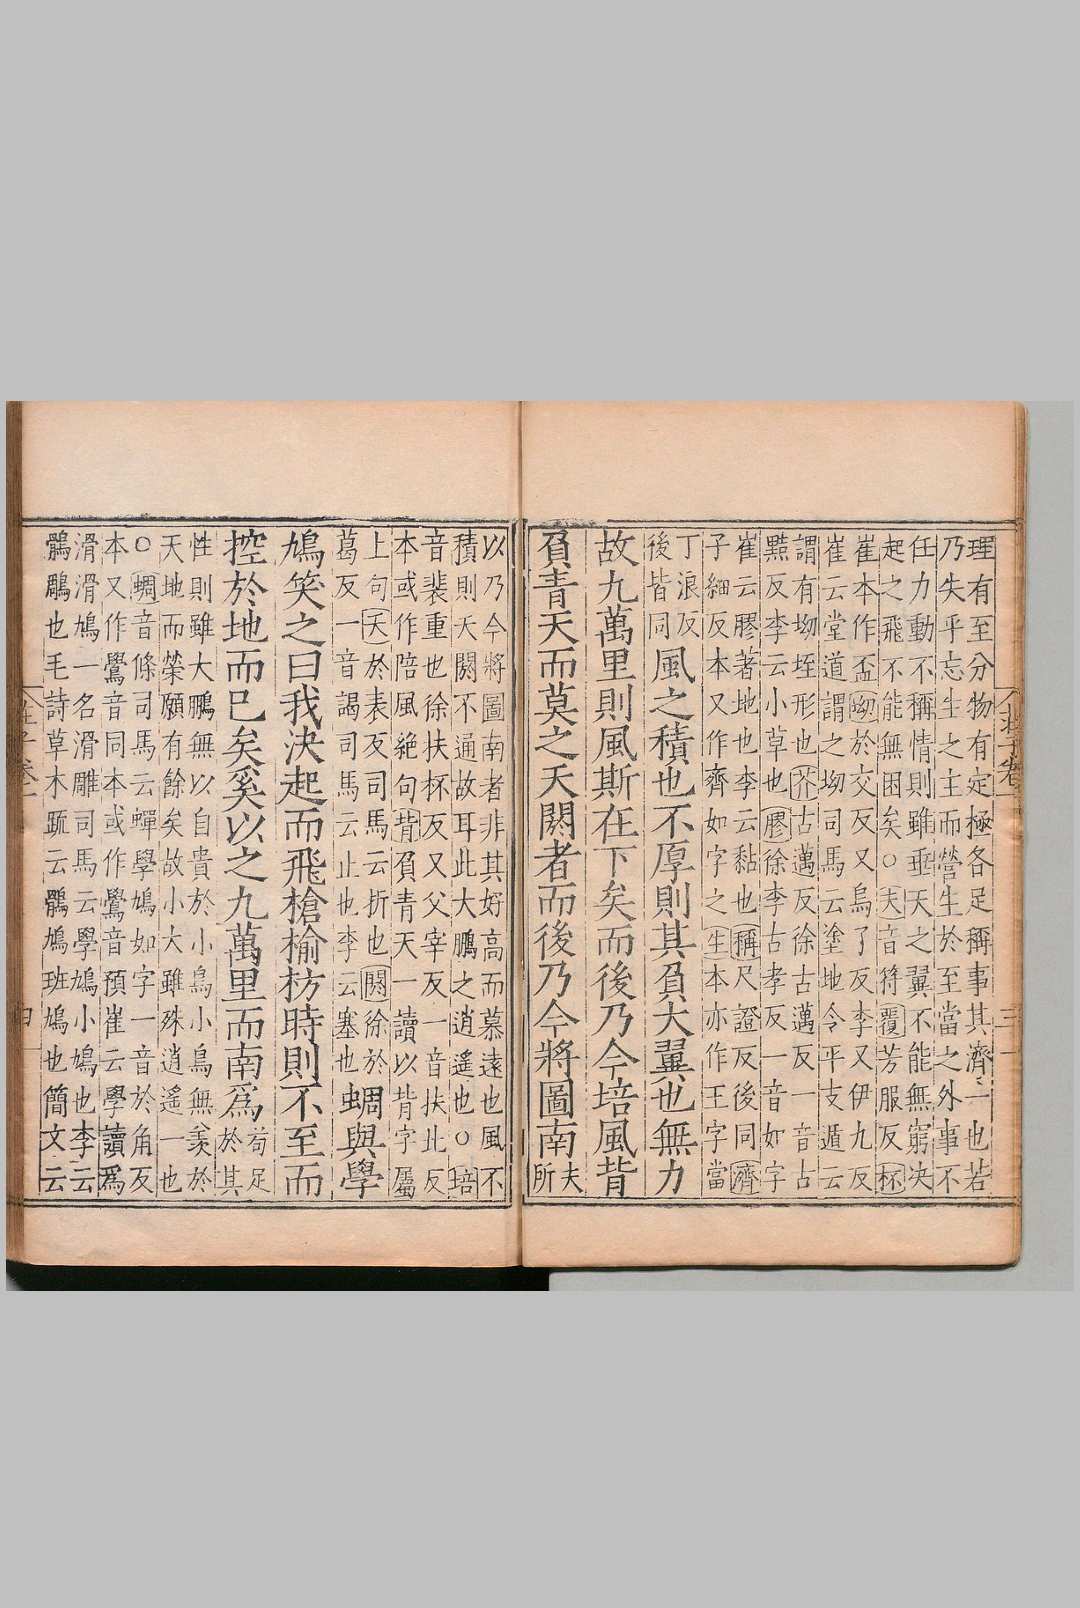 理有至分物有定極各足稱事其濟一也若
乃失乎忘生之主而營生於至當之外事不
任力動不稱情則雖垂天之翼不能無窮决
起之飛不能無困矣○夫音符覆芳服反杯
崔本作盃坳於交反又烏了反李又伊九反
崔云堂道謂之坳司馬云塗地令平支遁云
謂有坳垤形也芥古邁反徐古邁反一音古
黠反李云小草也膠徐李古孝反一音如字
崔云膠著地也李云黏也稱尺證反後同濟
子細反本又作齊如字之生本亦作王字當
丁浪反
後皆同
風之積也不厚則其負大翼也無力
故九萬里則風斯在下矣而後乃今培風背
負青天而莫之夭閼者而後乃今將圖南
夫
所
以乃今將圖南者非其好高而慕遠也風不
積則夭閼不通故耳此大鵬之逍遙也○培
音裴重也徐扶杯反又父宰反一音扶北反
本或作陪風絶句背負青天一讀以背字屬
上句夭於表反司馬云折也閼徐於
葛反一音謁司馬云止也李云塞也
蜩與學
鳩笑之曰我决起而飛槍榆枋時則不至而
控於地而已矣奚以之九萬里而南爲
苟足
於其
性則雖大鵬無以自貴於小鳥小鳥無羨於
天地而榮願有餘矣故小大雖殊逍遙一也
○蜩音條司馬云蟬學鳩如字一音於角反
本又作鷽音同本或作鸒音預崔云學讀爲
滑滑鳩一名滑雕司馬云學鳩小鳩也李云
鶻鵰也毛詩草木疏云鶻鳩班鳩也簡文云